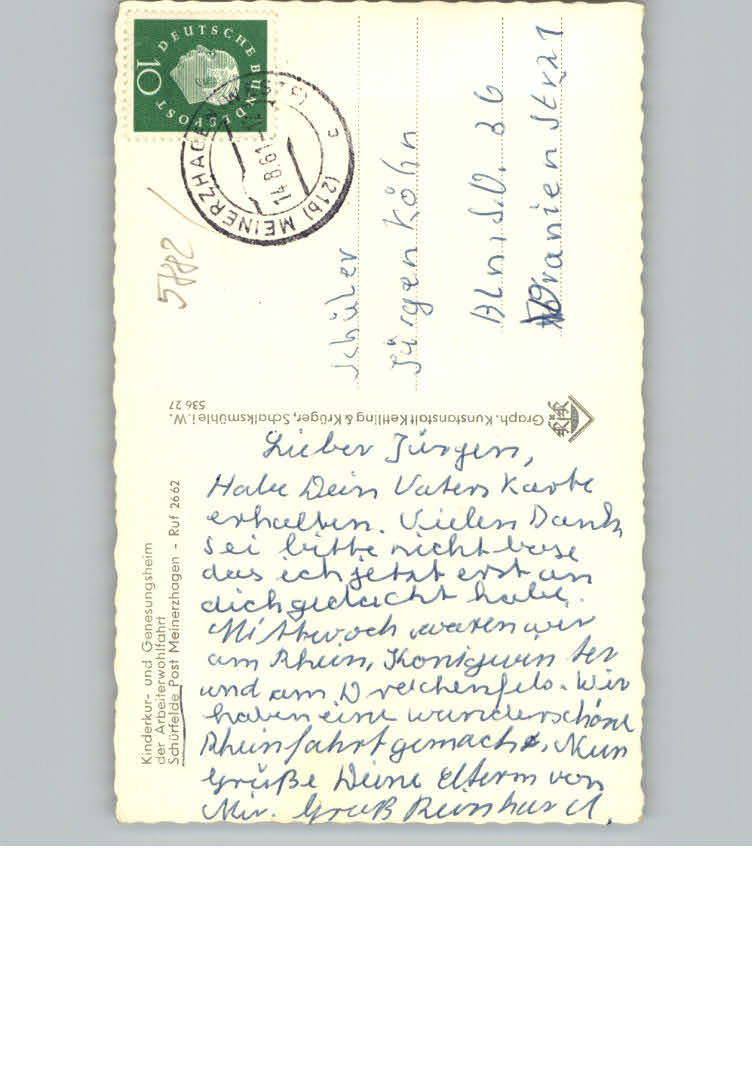 Kinderkur- und Genesungsheim
der Arbeiterwohlfahrt
Schürfelde Post Meinerzhagen - Ruf 2662
Lieber Jürgen,
Habe Dein Vaters Karte
erhalten. Vielen Dank,
Sei bitte nicht böse
das ich jetzt erst an
dich gedacht habe.
Mittwoch waren wir
am Rhein, Königwinter
und am Drechenfels. Wir
haben eine wunderschöne
Rheinfahrt gemacht. Nun
Grüße Deine Eltern von
Mir. Gruß Reinhard.
Graph. Kunstanstalt Kettling & Krüger, Schalksmühle i.W.
536 27
K&K
DEUTSCHE BUNDESPOST
10
(21b) MEINERZHAGEN
14.8.61
c
5882
Schüler
Jürgen Köhn
Bln. S.O. 36
Oranienstr 21